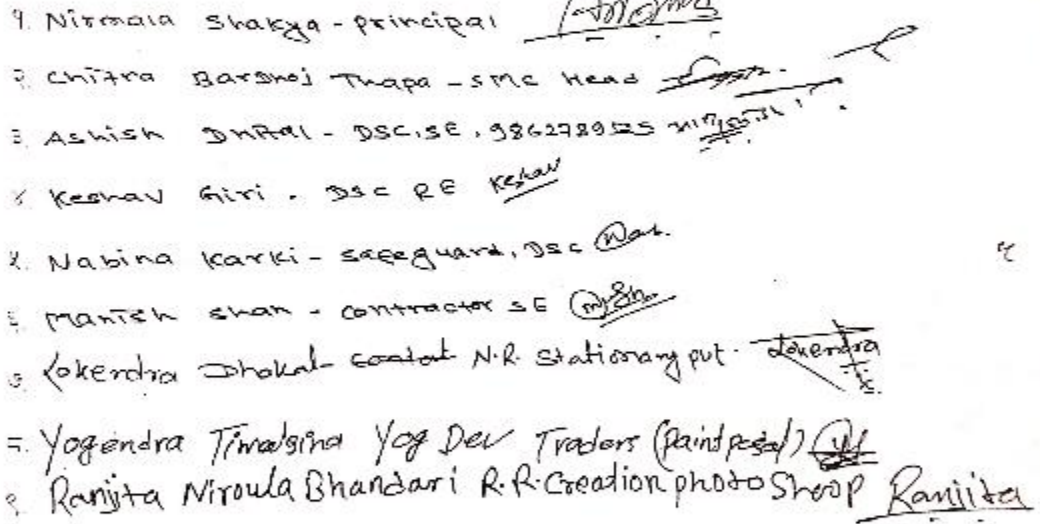 १. Nirmala Shakya - principal
२. Chitra Barshoj Thapa - SMC Head
३. Ashish Dhital - DSC, SE, 9862789525
४. Keshav Giri - DSC RE Keshav
५. Nabina Karki - safeguard, DSC Nab.
६. Manish Shah - contractor SE
७. Lokendra Dhakal N.R. Stationary put. Lokendra
८. Yogendra Timalsina Yog Dev Traders (Paint pasal)
९. Ranjita Niroula Bhandari R.R. Creation photo Shoop Ranjita